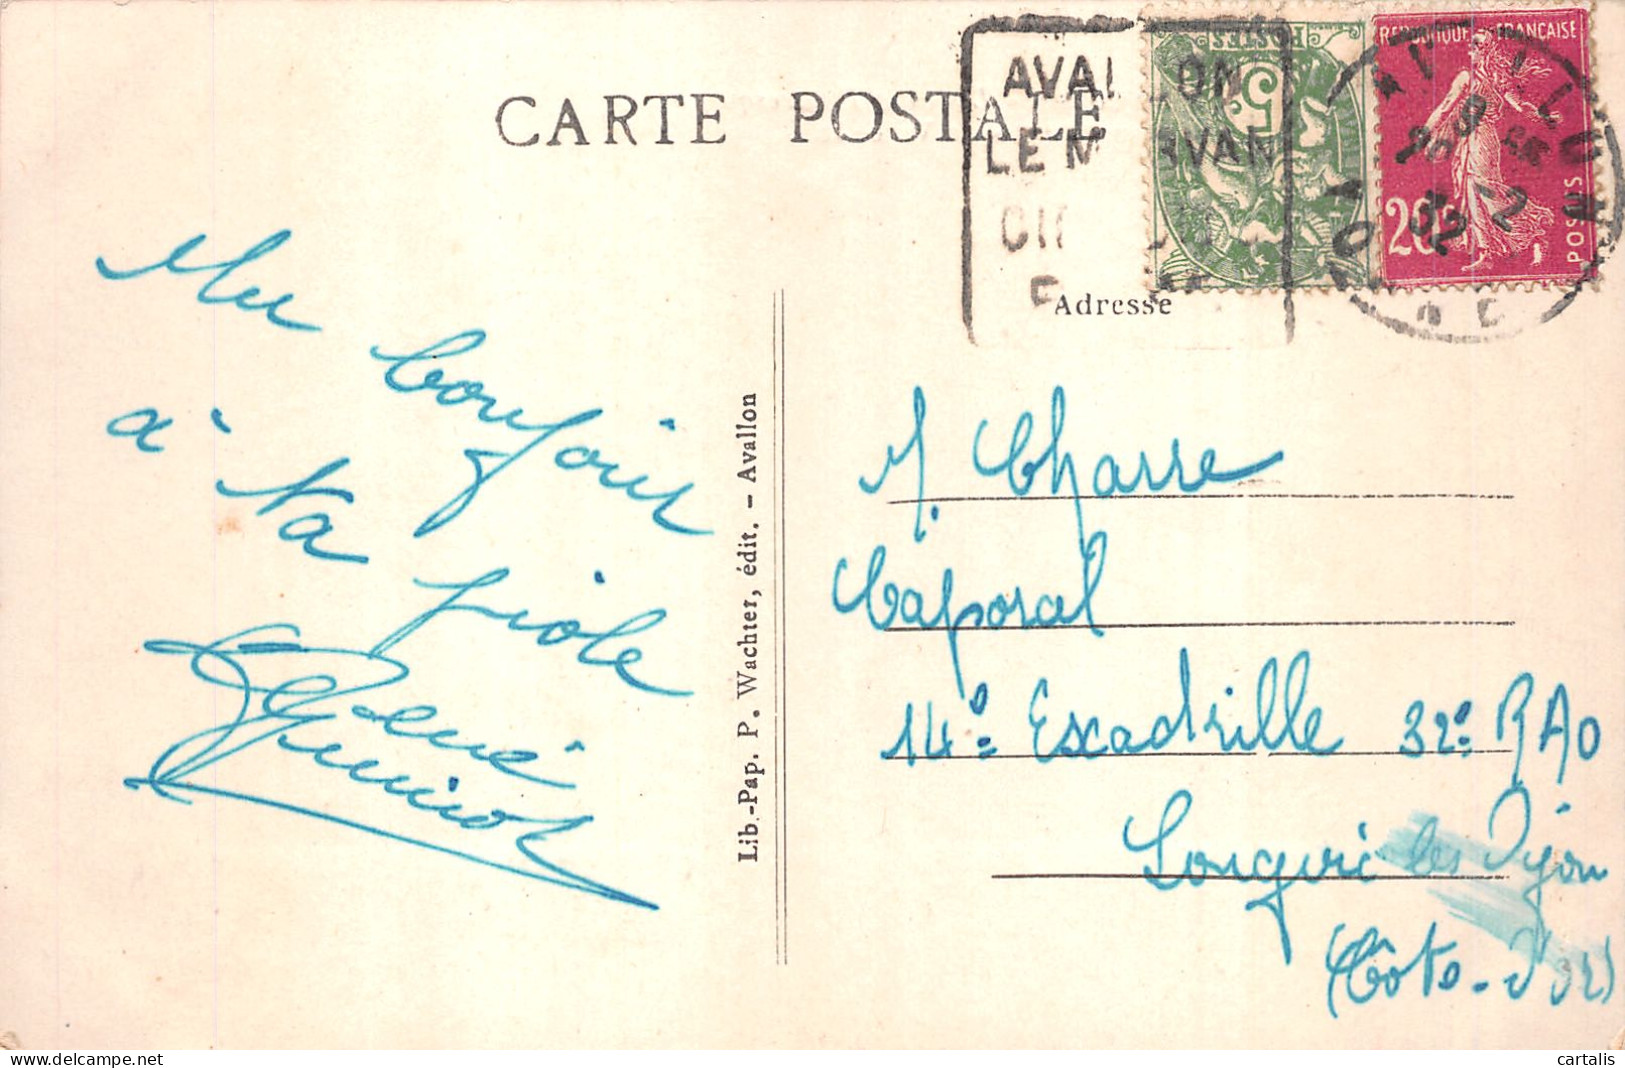 CARTE POSTALE
AVALLON
LE MORVAN
POSTES
5
REPUBLIQUE FRANÇAISE
20c
POSTES
9
32
Adresse
Un bonjour
à Na
piole
René
Guninot
Lib.-Pap. P. Wachter, édit. - Avallon
M. Charre
Caporal
14e Escadrille 32e RAO
Longvic les Dijon
(Côte-d'Or)
cartalis